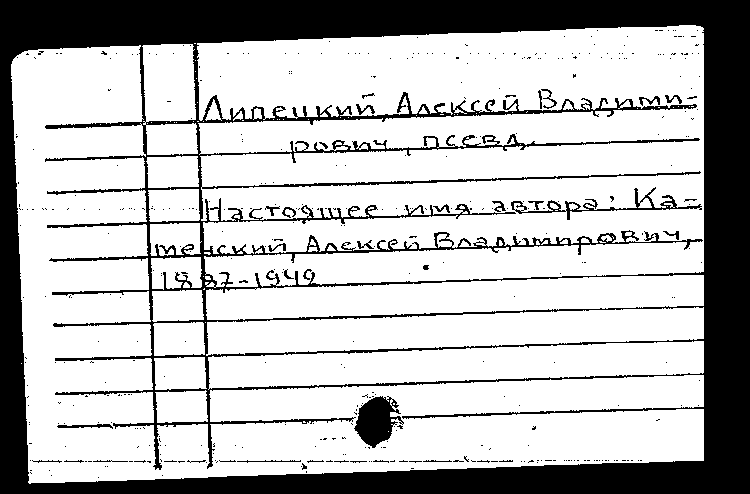 Липецкий, Алексей Владими-
рович, псевд.
Настоящее имя автора: Ка-
менский, Алексей Владимирович,
1887-1942